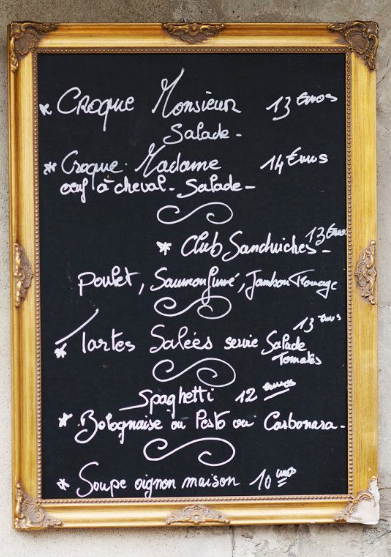 * Croque Monsieur 13 Euros
Salade -
* Croque Madame 14 Euros
œuf à cheval - Salade -
* Club Sandwiches - 13 Euros
poulet, Saumon fumé, Jambon Fromage
* Tartes Salées servie Salade Tomates 13 Euros
Spaghetti 12 euros
* Bolognaise ou Pesto ou Carbonara -
* Soupe oignon maison 10 euros